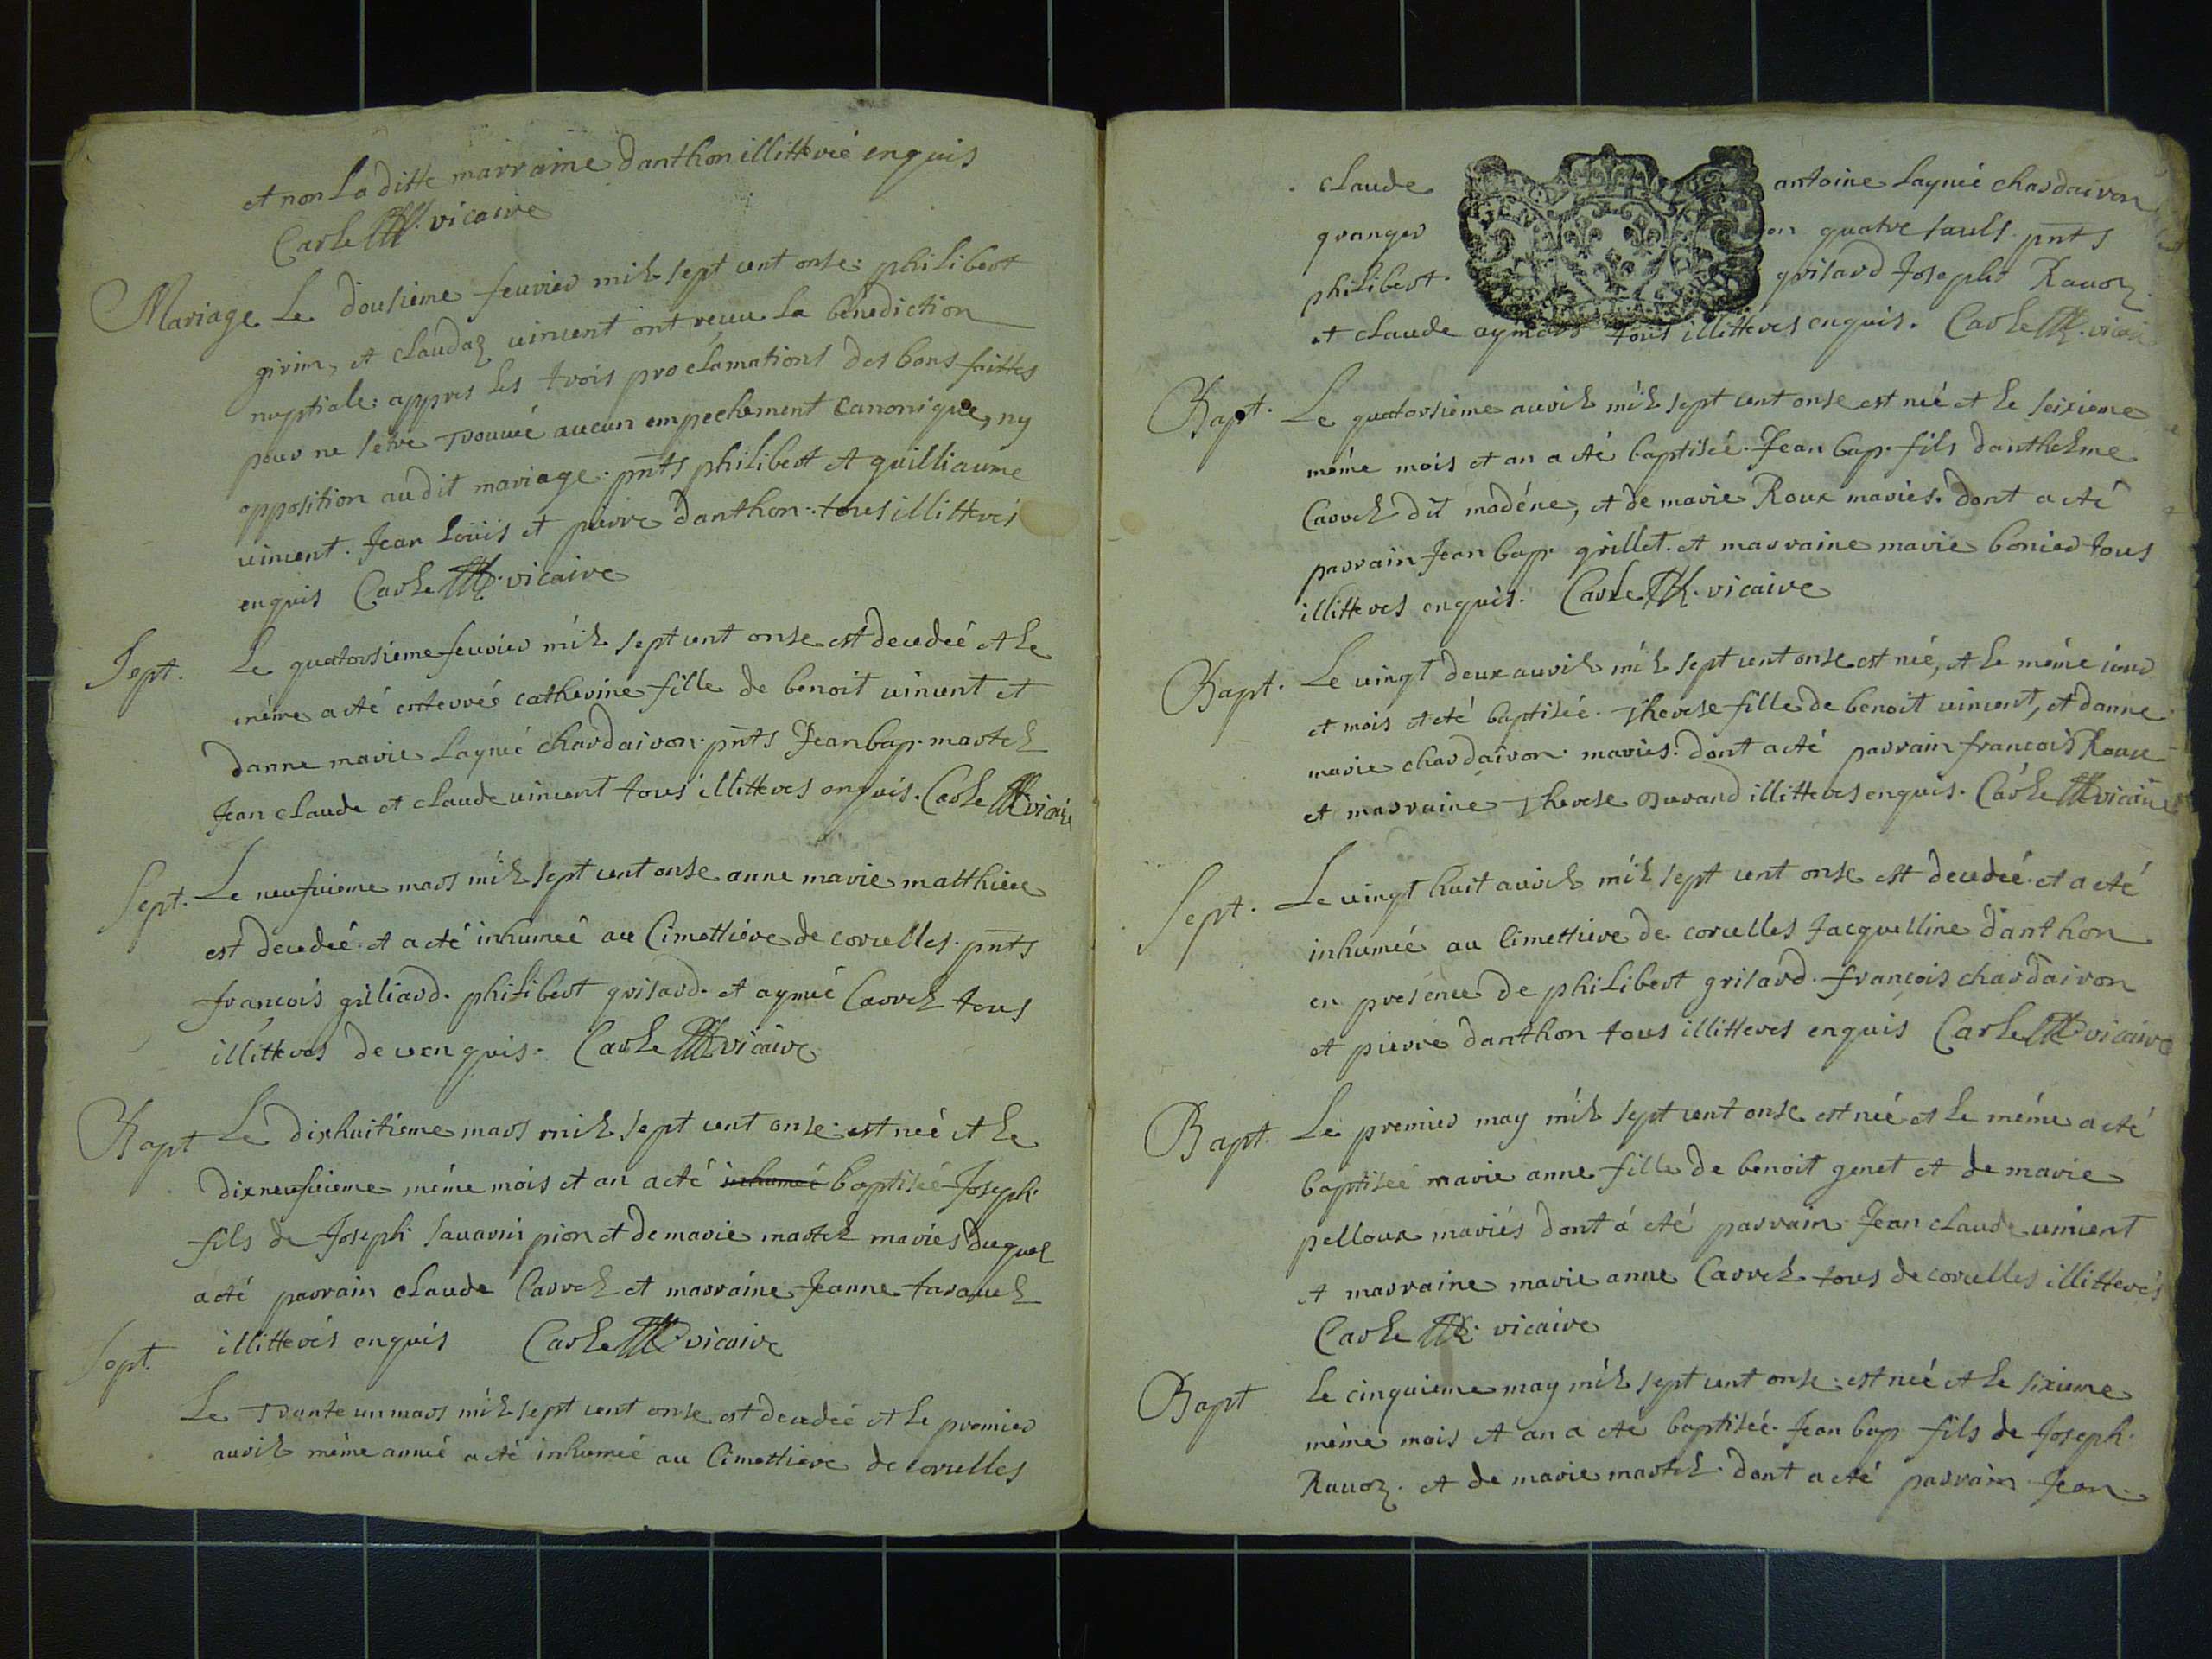 et non la ditte marraine danthon illitteré enquis
Carle vicaire
Mariage Le dousieme feuvier mil sept cent onse: philibert
girin, et claudaz uincent ont receu la benediction
nuptiale: appres les trois proclamations des bans faittes
pour ne setre trouuée aucun empechement canonique, ny
opposition audit mariage: pnts philibert et guilliaume
uincent. Jean Loüis et pierre danthon: tous illitterés
enquis Carle vicaire
Sept. Le quatorsieme feuvier mil sept cent onse est decedeé et le
même a eté enterrée catherine fille de benoit uincent et
danne marie layneé chardairon: pnts Jean bap. martel
Jean claude et claude uincent tous illitteres enquis. Carle vicaire
Sept. Le neufuieme mars mil sept cent onse anne marie matthieu
est decedeé et a eté inhumeé au Cimettiere de corcelles. pnts
francois giliard. philibert grisard. et aymé Carrel tous
illitteres de ce enquis. Carle vicaire
Bapt Le dixhuitiéme mars mil sept cent onse: est neé et le
dixneufuieme même mois et an a eté inhumeé baptiseé Joseph
fils de Joseph sauarin pion et de marie martel mariés duquel
a eté parrain claude Carrel et marraine Jeanne tarauel
illitterés enquis Carle vicaire
Sept. Le trante un mars mil sept cent onse est decedeé et le premier
auril même anneé a eté inhumeé au Cimettiere de corcelles
claude antoine layneé chardairon
granger quatre pnts
philibert grisard Joseph Rauoz
et claude aymard tous illitteres enquis. Carle vicaire
Bapt. Le quatorsieme auril mil sept cent onse est neé et le seixieme
même mois et an a eté baptiseé. Jean bap. fils danthelme
Carrel dit modéne, et de marie Roux mariés. dont a eté
parrain Jean bap. grillet. et marraine marie bonier tous
illitteres enquis. Carle vicaire
Bapt. Le uingt deux auril mil sept cent onse est neé, et le même iour
et mois et eté baptiseé. Therese fille de benoit uincent, et danne
marie chardairon. mariés: dont a eté parrain francois Roux
et marraine Therese illitteres enquis. Carle vicaire
Sept. Le uingt huit auril mil sept cent onse est decedeé. et a eté
inhumeé au Cimettiere de corcelles Jacquelline danthon
en presence de philibert grisard. francois chardairon
et pierre danthon tous illitteres enquis Carle vicaire
Bapt. Le premier may mil sept cent onse est neé et le même a eté
baptiseé marie anne fille de benoit genet et de marie
pelloux mariés dont á eté parrain Jean claude uincent
et marraine marie anne Carrel tous de corcelles illitterés
Carle vicaire
Bapt le cinquieme may mil sept cent onse: est neé et le sixieme
même mois et an a eté baptiseé. Jean bap fils de Joseph
Rauoz. et de marie martel. dont a eté parrain Jean